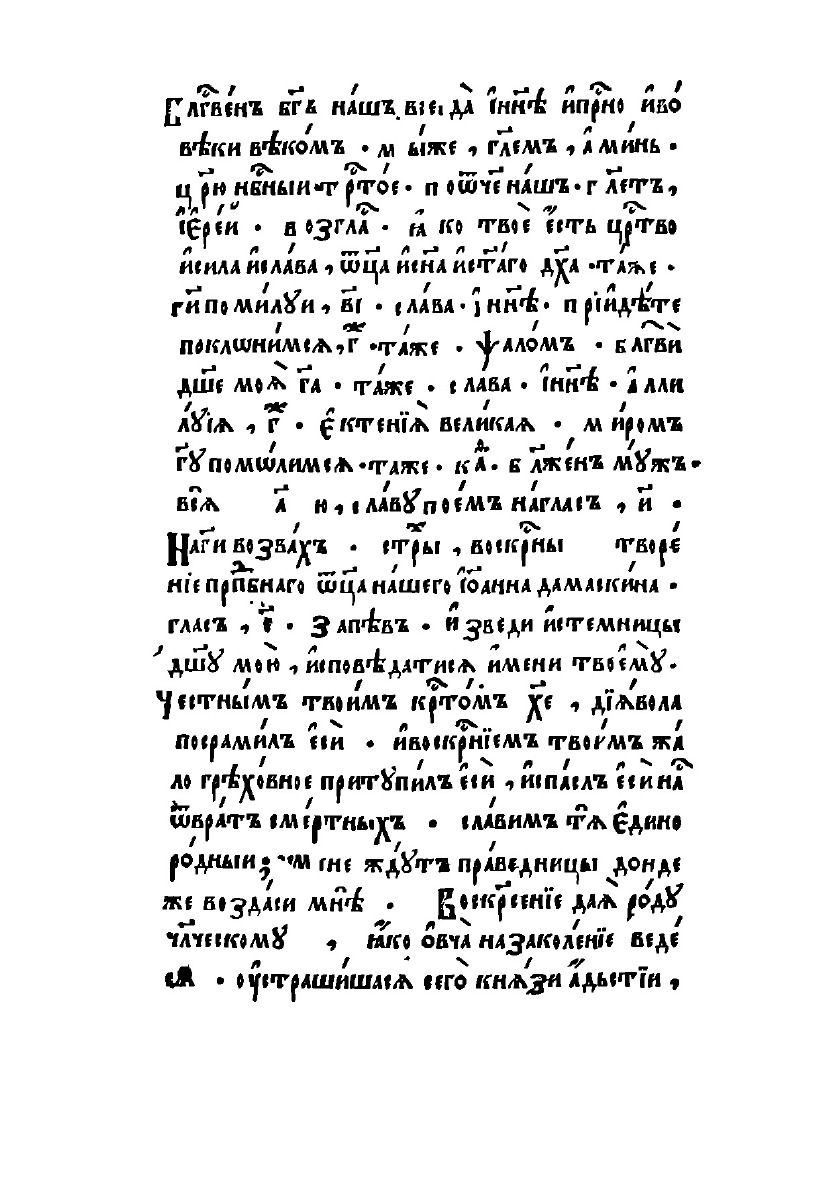 Блгⷭ҇ве́нъ бг҃ъ на́шъ всегда̀ и҆ нн҃ѣ и҆ прⷭ҇но и҆ во́
вѣки вѣко́мъ · мы́же , гл҃емъ , а҆ми́нь ·
цр҃ю нбⷭ҇ныи · трⷭ҇то́е · по ѿч҃е на́шъ · гл҃етъ ,
і҆е҆ре́й · возгла́ⷭ · ꙗ҆́ко твоѐ е҆́сть црⷭ҇тво
и҆ сила и҆ сла́ва , ѿц҃а и҆ сн҃а и҆ ст҃а́го дх҃а · та́же ·
гⷭ҇и поми́лꙋи , в҃і · сла́ва · і҆ нн҃ѣ · прїи҆дѣ́те
поклѡни́мсѧ , г҃ · та́же · ѱало́мъ · блгⷭ҇вѝ
дш҃е моѧ̀ гⷭ҇а · та́же · сла́ва · і҆ нн҃ѣ · а҆лли
лꙋ́їѧ , г҃ · е҆ктенїѧ̀ вели́каѧ · ми́ромъ
гⷭ҇ꙋ помѡ́лимсѧ · таже · каⷴ · бл҃же́нъ мꙋ́жъ ·
всѧ̑ а҃ ю , сла́вꙋ пое́мъ на́ гласъ , и҃ ·
На гⷭ҇и возва́хъ · стⷯры , воскрⷭ҇ны творе́
нїе прпⷣбнаго ѿц҃а на́шего і҆ѡанна дамаски́на ·
гласъ , є҃ · Запѣ́въ · И҆зведи и҆стемницы
дш҃ꙋ мою̀ , и҆сповѣ́датисѧ и҆́мени твоемꙋ̀ ·
Честны́мъ твои́мъ крⷭ҇то́мъ хе҃ , дїѧ́вола
посрами́лъ е҆сѝ · и҆ воскрⷭ҇нїемъ твои́мъ жа́
ло грѣхо́вное притꙋпи́лъ е҆сѝ , и҆ спа́слъ е҆сѝ наⷭ
ѿ вра́тъ сме́ртныхъ · сла́вимъ тѧ̑ е҆дино
ро́дныи ; мене жд́ꙋтъ пра́ведницы до́нде
же возда́си мнѣ̀ · Воскрⷭ҇сенїе даѧ̀ ро́дꙋ
чл҃ческомꙋ , ꙗ҆́ко ѻ҆вча̀ на заколе́нїе веде́
сѧ · ѹ҆страши́шасѧ сегѡ̀ кнѧ́зи а҆́дьстїи ,